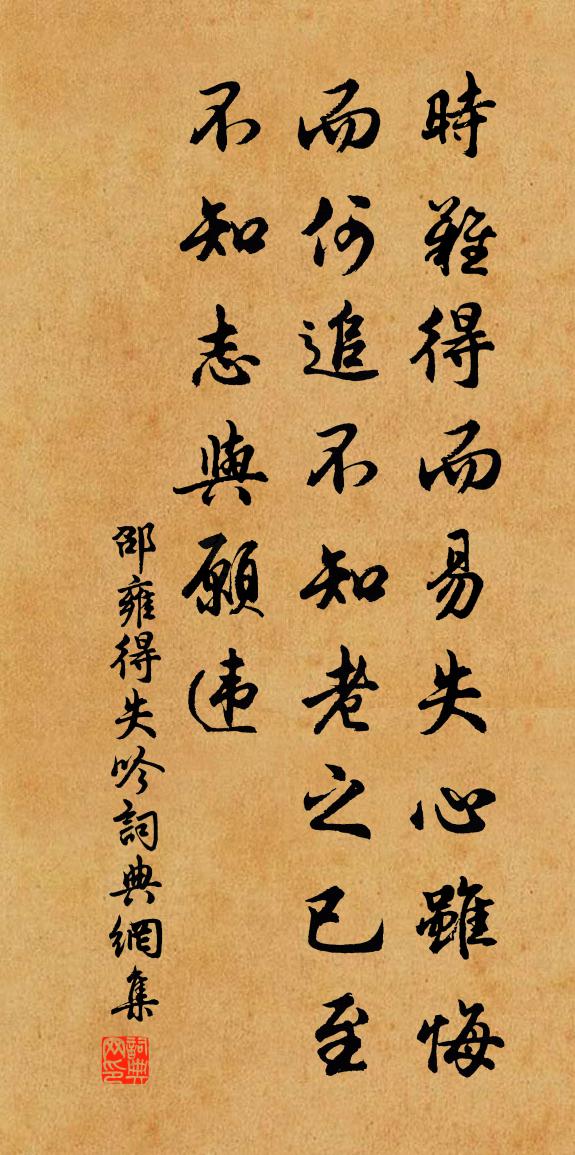 時難得而易失心雖悔
而何追不知老之已至
不知志與願违
邵雍得失吟詞典網集
詞典网印